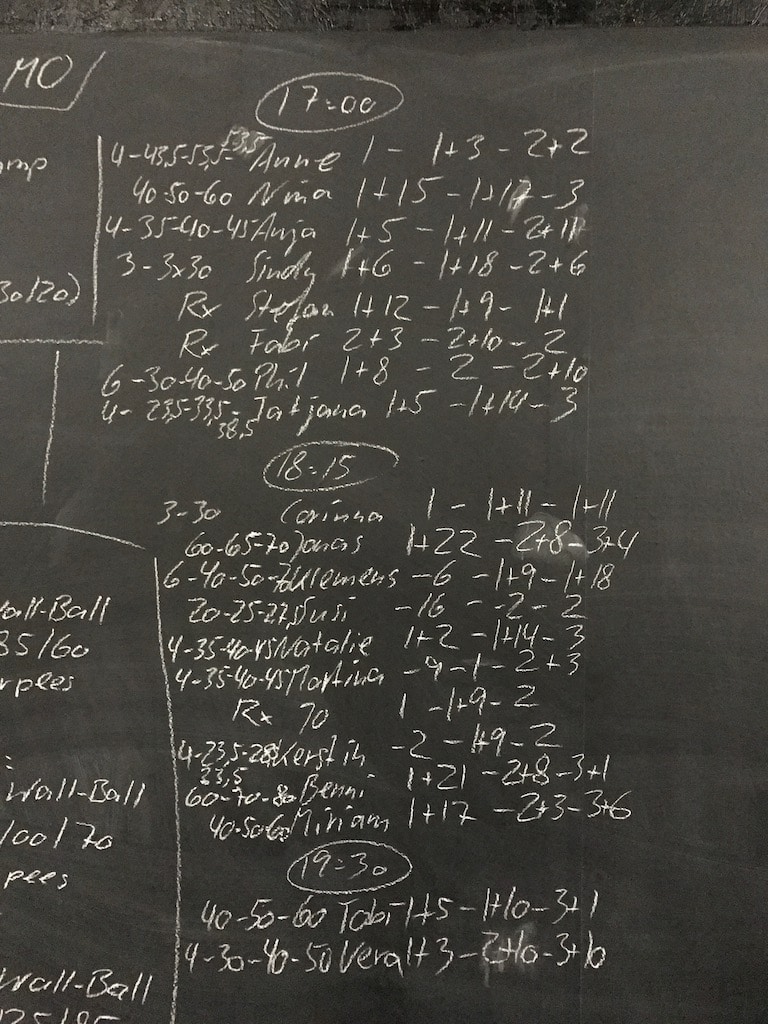 MO
17:00
4-43,5-53,5-53,5 Anne 1 - 1+3 - 2+2
40-50-60 Nina 1+15 - 1+17 - 3
4-35-40-45 Anja 1+5 - 1+11 - 2+11
3-3x30 Sindy 1+6 - 1+18 - 2+6
30/20)
Rx Stefan 1+12 - 1+9 - 1+1
Rx Fabi 2+3 - 2+10 - 2
6-30-40-50 Phil 1+8 - 2 - 2+10
4-23,5-33,5-38,5 Tatjana 1+5 - 1+14 - 3
18:15
3-30 Corinna 1 - 1+11 - 1+11
60-65-70 Jonas 1+22 - 2+8 - 3+4
6-40-50- Klemens -6 - 1+9 - 1+18
20-25-27,5 Susi -16 - -2 - 2
4-35-40-45 Natalie 1+2 - 1+14 - 3
4-35-40-45 Martina -9 - 1 - 2+3
Rx 70 1 - 1+9 - 2
4-23,5-28, Kerstin -2 - 1+9 - 2
23,5
60-70-80 Benni 1+21 - 2+8 - 3+1
40-50-60 Miriam 1+17 - 2+3 - 3+6
19:30
40-50-60 Tobi 1+5 - 1+10 - 3+1
4-30-40-50 Vera 1+3 - 2+10 - 3+10
Wall-Ball
85/60
rpees
Wall-Ball
100/70
pees
Wall-Ball
125/85